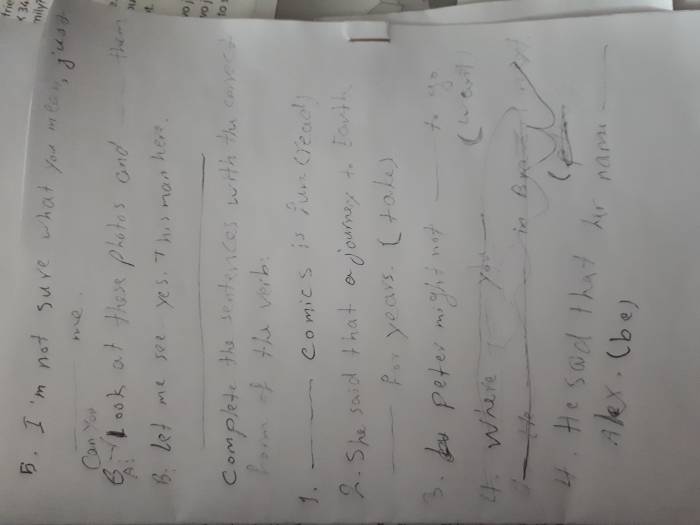 5. I'm not sure what you mean, just
___ me.
Can you
B A: Look at these photos and ___ them
B: Let me see yes. This man here.
Complete the sentences with the correct
form of the verb:
1. ___ comics is fun (read)
2. She said that a journey to Earth
___ for years. (take)
3. peter might not ___ to go
(want)
4. Where ___ you
in
4. He said that her name ___
Alex. (be)